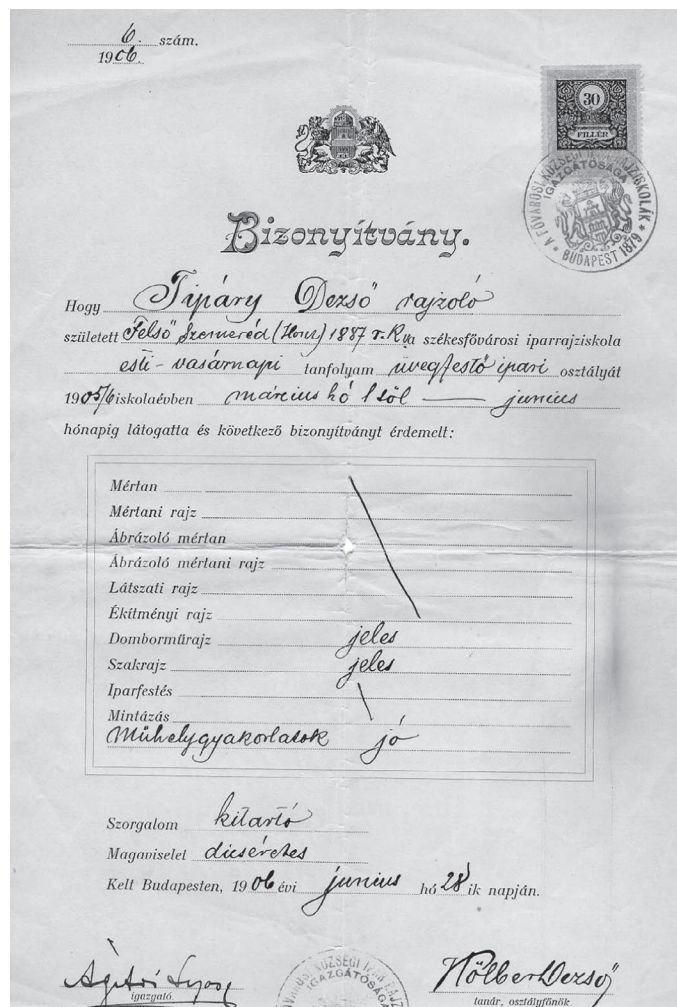 6. szám.
1906.
30
FILLÉR
A FŐVÁROSI KÖZSÉGI IPARRAJZISKOLÁK
IGAZGATÓSÁGA
BUDAPEST 1879
Bizonyítvány.
Hogy Tipáry Dezső rajzoló
született Felső Szemeréd (Hont) 1887 székesfővárosi iparrajziskola
esti-vasárnapi tanfolyam üvegfestő ipari osztályát
1905/6 iskolaévben március hó 1 től — junius
hónapig látogatta és következő bizonyítványt érdemelt:
Mértan
Mértani rajz
Ábrázoló mértan
Ábrázoló mértani rajz
Látszati rajz
Ékítményi rajz
Domborműrajz jeles
Szakrajz jeles
Iparfestés
Mintázás
Műhelygyakorlatok jó
Szorgalom kitartó
Magaviselet dicséretes
Kelt Budapesten, 1906 évi junius hó 28 ik napján.
Hölber Dezső
igazgató.
tanár, osztályfőnök.
KÖZSÉGI IPAR RAJZ
IGAZGATÓSÁGA